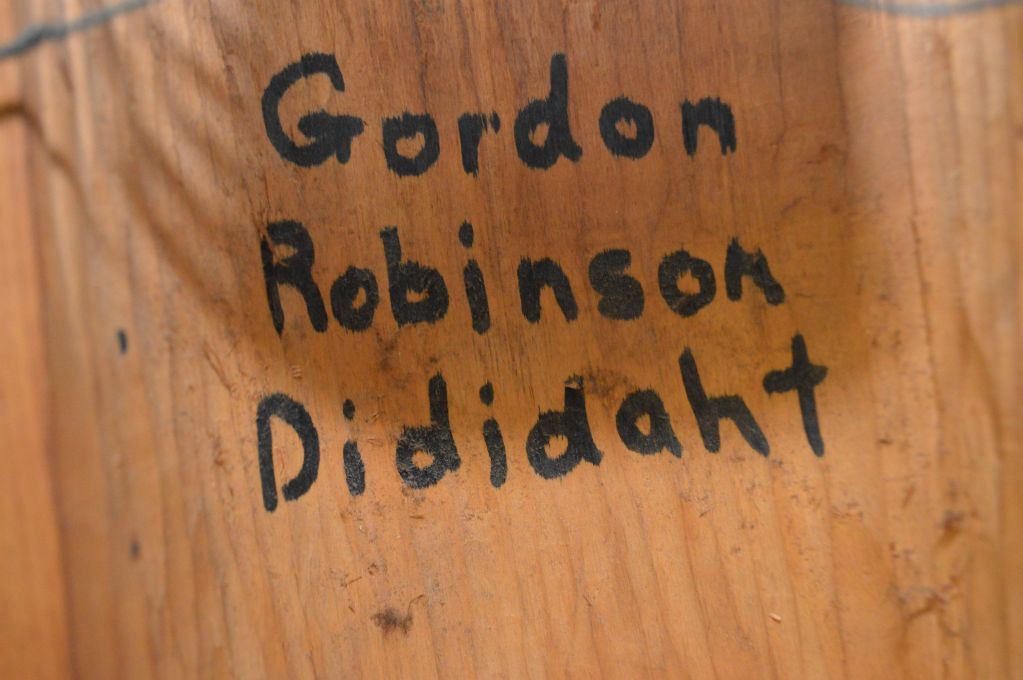 Gordon
Robinson
Dididaht